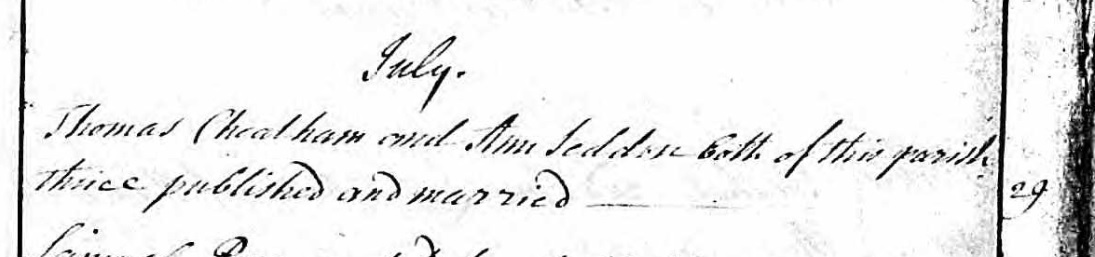 July.
Thomas Cheatham and Ann Seddon both of this parish
thrice published and married 29
Samuel